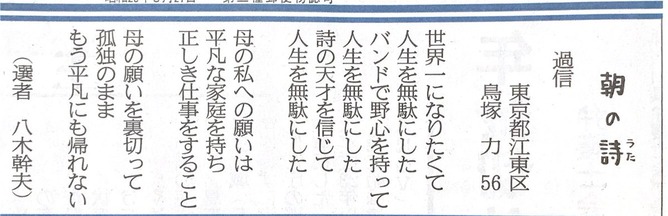 朝の詩
うた
過信
東京都江東区
鳥塚 力 56
世界一になりたくて
人生を無駄にした
バンドで野心を持って
人生を無駄にした
詩の天才を信じて
人生を無駄にした
母の私への願いは
平凡な家庭を持ち
正しき仕事をすること
母の願いを裏切って
孤独のまま
もう平凡にも帰れない
(選者 八木幹夫)